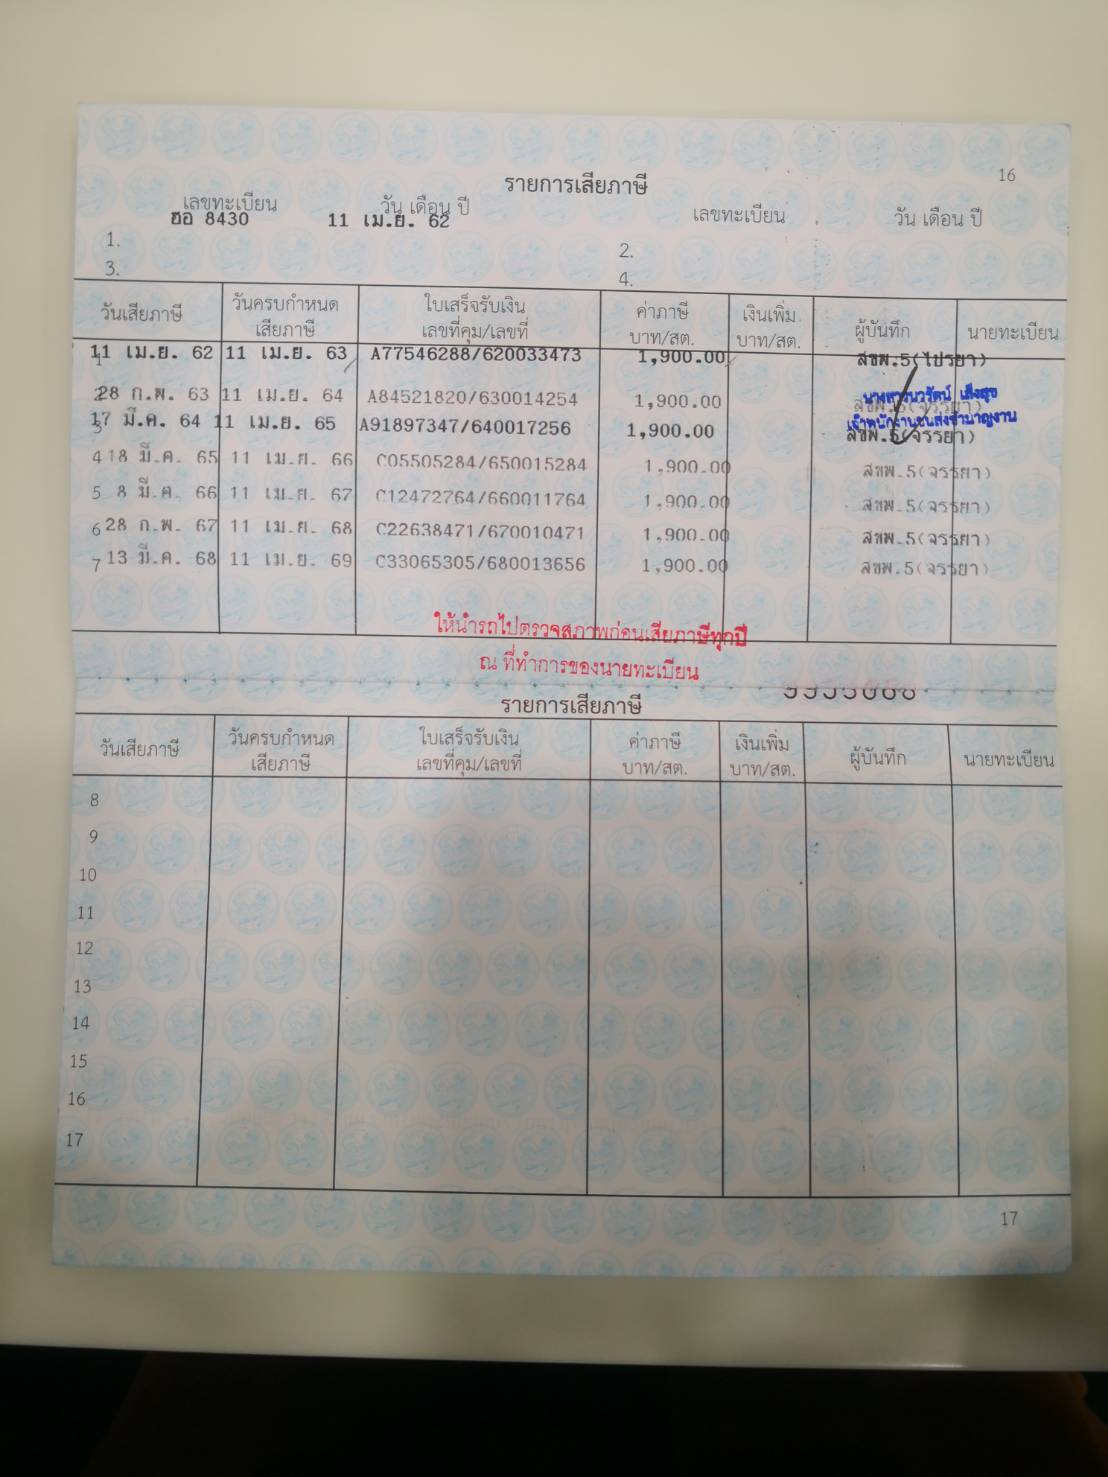 16
รายการเสียภาษี
เลขทะเบียน วัน เดือน ปี เลขทะเบียน วัน เดือน ปี
ฮอ 8430 11 เม.ย. 62
1. 2.
3. 4.
วันเสียภาษี วันครบกำหนดเสียภาษี ใบเสร็จรับเงิน เลขที่คุม/เลขที่ ค่าภาษี บาท/สต. เงินเพิ่ม บาท/สต. ผู้บันทึก นายทะเบียน
1 11 เม.ย. 62 11 เม.ย. 63 A77546288/620033473 1,900.00 สขพ.5(ไปรยา)
2 28 ก.พ. 63 11 เม.ย. 64 A84521820/630014254 1,900.00 สขพ.5(จรรยา)
3 17 มี.ค. 64 11 เม.ย. 65 A91897347/640017256 1,900.00 สขพ.5(จรรยา)
เจ้าพนักงานขนส่งชำนาญงาน
4 18 มี.ค. 65 11 เม.ย. 66 C05505284/650015284 1,900.00 สขพ.5(จรรยา)
5 8 มี.ค. 66 11 เม.ย. 67 C12472764/660011764 1,900.00 สขพ.5(จรรยา)
6 28 ก.พ. 67 11 เม.ย. 68 C22638471/670010471 1,900.00 สขพ.5(จรรยา)
7 13 มี.ค. 68 11 เม.ย. 69 C33065305/680013656 1,900.00 สขพ.5(จรรยา)
ให้นำรถไปตรวจสภาพก่อนเสียภาษีทุกปี
ณ ที่ทำการของนายทะเบียน
รายการเสียภาษี
วันเสียภาษี วันครบกำหนดเสียภาษี ใบเสร็จรับเงิน เลขที่คุม/เลขที่ ค่าภาษี บาท/สต. เงินเพิ่ม บาท/สต. ผู้บันทึก นายทะเบียน
8
9
10
11
12
13
14
15
16
17
17